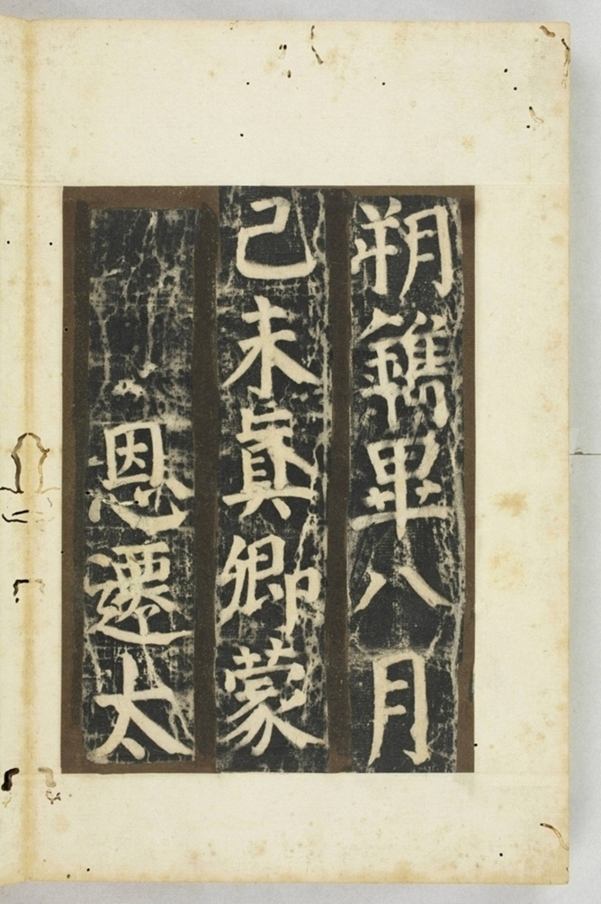 朔鐫畢八月
己未真卿蒙
恩遷太